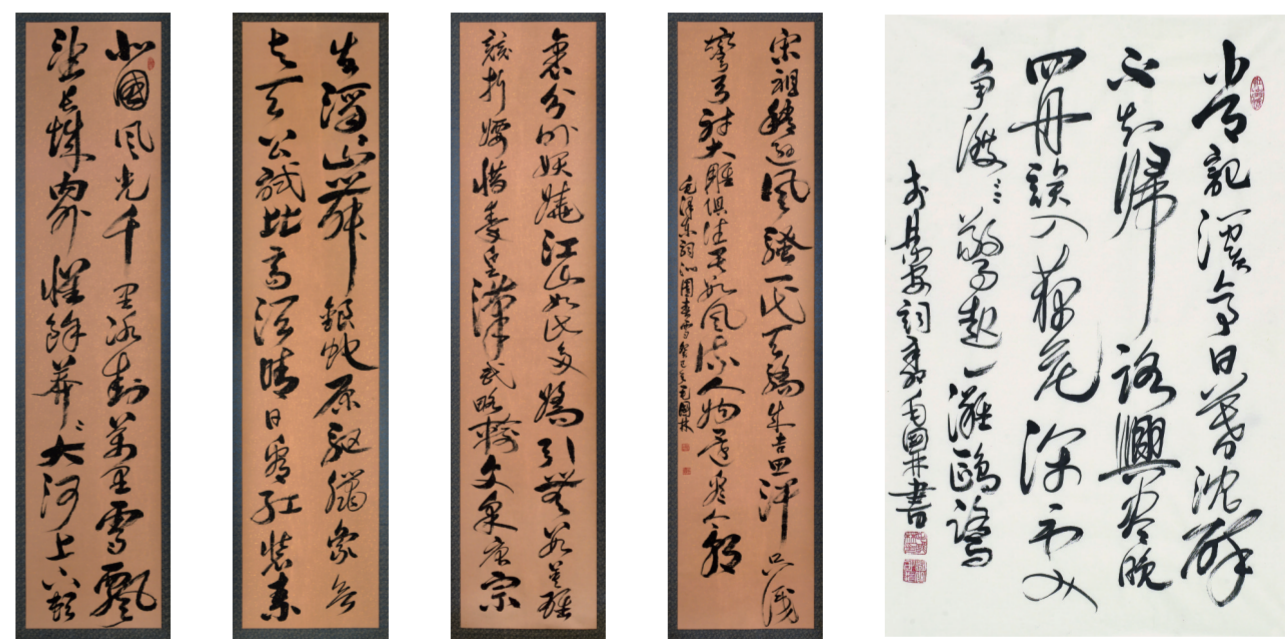 北國風光千里冰封萬里雪飄
望長城內外惟餘莽〻大河上下頓
失滔〻山舞銀蛇原馳蠟象欲
與天公試比高須晴日看紅裝素
裹分外妖嬈江山如此多嬌引無數英雄
競折腰惜秦皇漢武略輸文采唐宗
宋祖稍遜風騷一代天驕成吉思汗只識
彎弓射大雕俱往矣數風流人物還看今朝
毛澤東詞沁園春雪癸巳冬毛國林
常記溪亭日暮沈醉
不知歸路興盡晚
回舟誤入藕花深處
爭渡〻〻驚起一灘鷗鷺
李易安詞 毛國林書